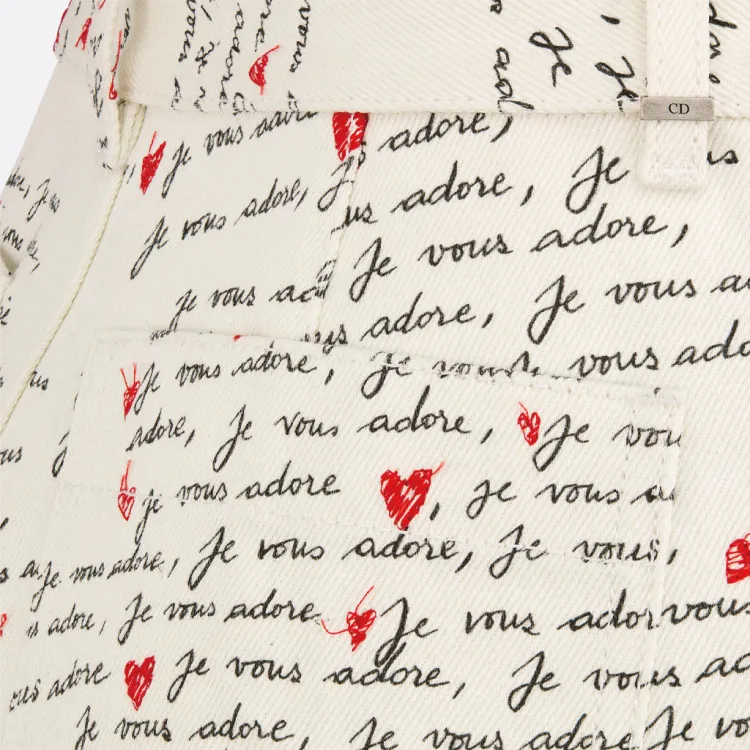 Je
Je
CD
Je vous adore
adore,
Je vous adore,
us adore, Je
us
Je vous
Je vous adore,
us adore, Je vous
Je vous adore, Je vous adore
adore, Je vous adore, Je vous
Je vous adore, Je vous
Je vous adore, Je vous adore, Je vous,
us adore, Je vous adore Je vous adore vous
ous adore Je vous adore, Je vous
Je vous adore, Je vous adore Je vous